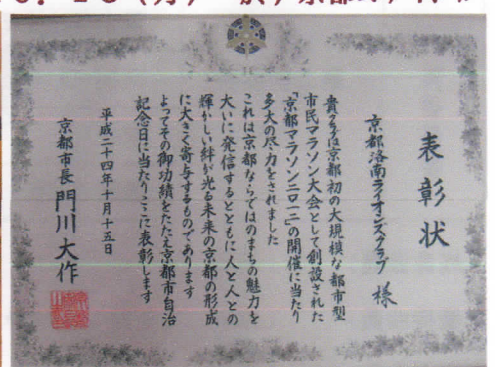 表彰状
京都洛南ライオンズクラブ 様
貴クラブは京都初の大規模な都市型
市民マラソン大会として創設された
「京都マラソン二〇一二」の開催に当たり
多大の尽力をされました
これは京都ならではのまちの魅力を
大いに発信するとともに人と人との
輝かしい絆が光る未来の京都の形成
に大きく寄与するものであります
よってその御功績をたたえ京都市自治
記念日に当たりここに表彰します
平成二十四年十月十五日
京都市長 門川大作